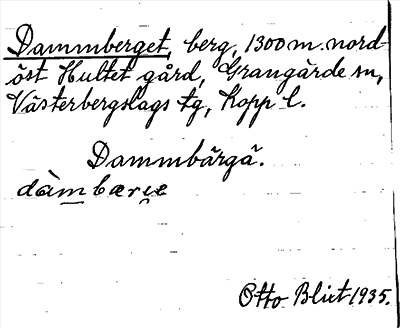 Dammberget, berg, 1300 m. nord-
öst Hultet gård, Grangärde sn,
Västerbergslags tg, Kopp l.
Dammbärgä.
dàmbærɟe
Otto Blixt 1935.